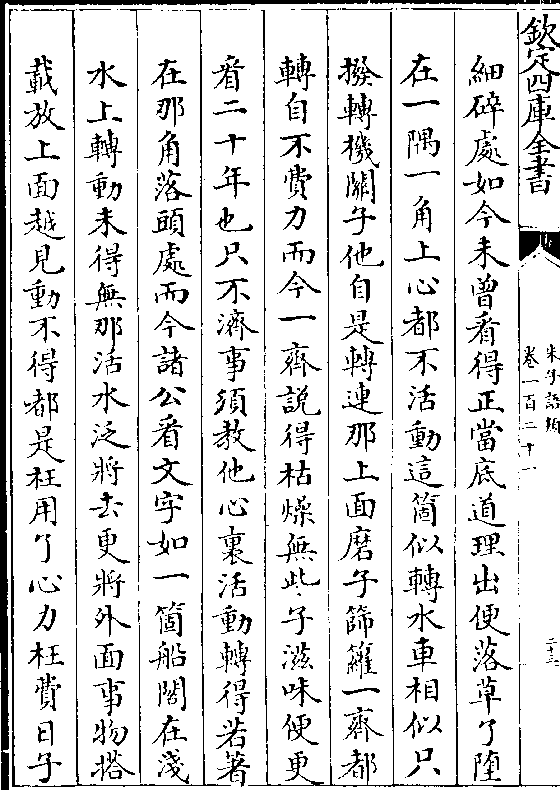 欽定四庫全書
朱子語類
卷一百二十一
二十三
細碎處如今未曾看得正當底道理出便落草了墮
在一隅一角上心都不活動這箇似轉水車相似只
撥轉機關子他自是轉連那上面磨子篩籮一齊都
轉自不費力而今一齊說得枯燥無些子滋味便更
看二十年也只不濟事須教他心裏活動轉得若著
在那角落頭處而今諸公看文字如一箇船閣在淺
水上轉動未得無那活水泛將去更將外面事物搭
載放上面越見動不得都是枉用了心力枉費日子